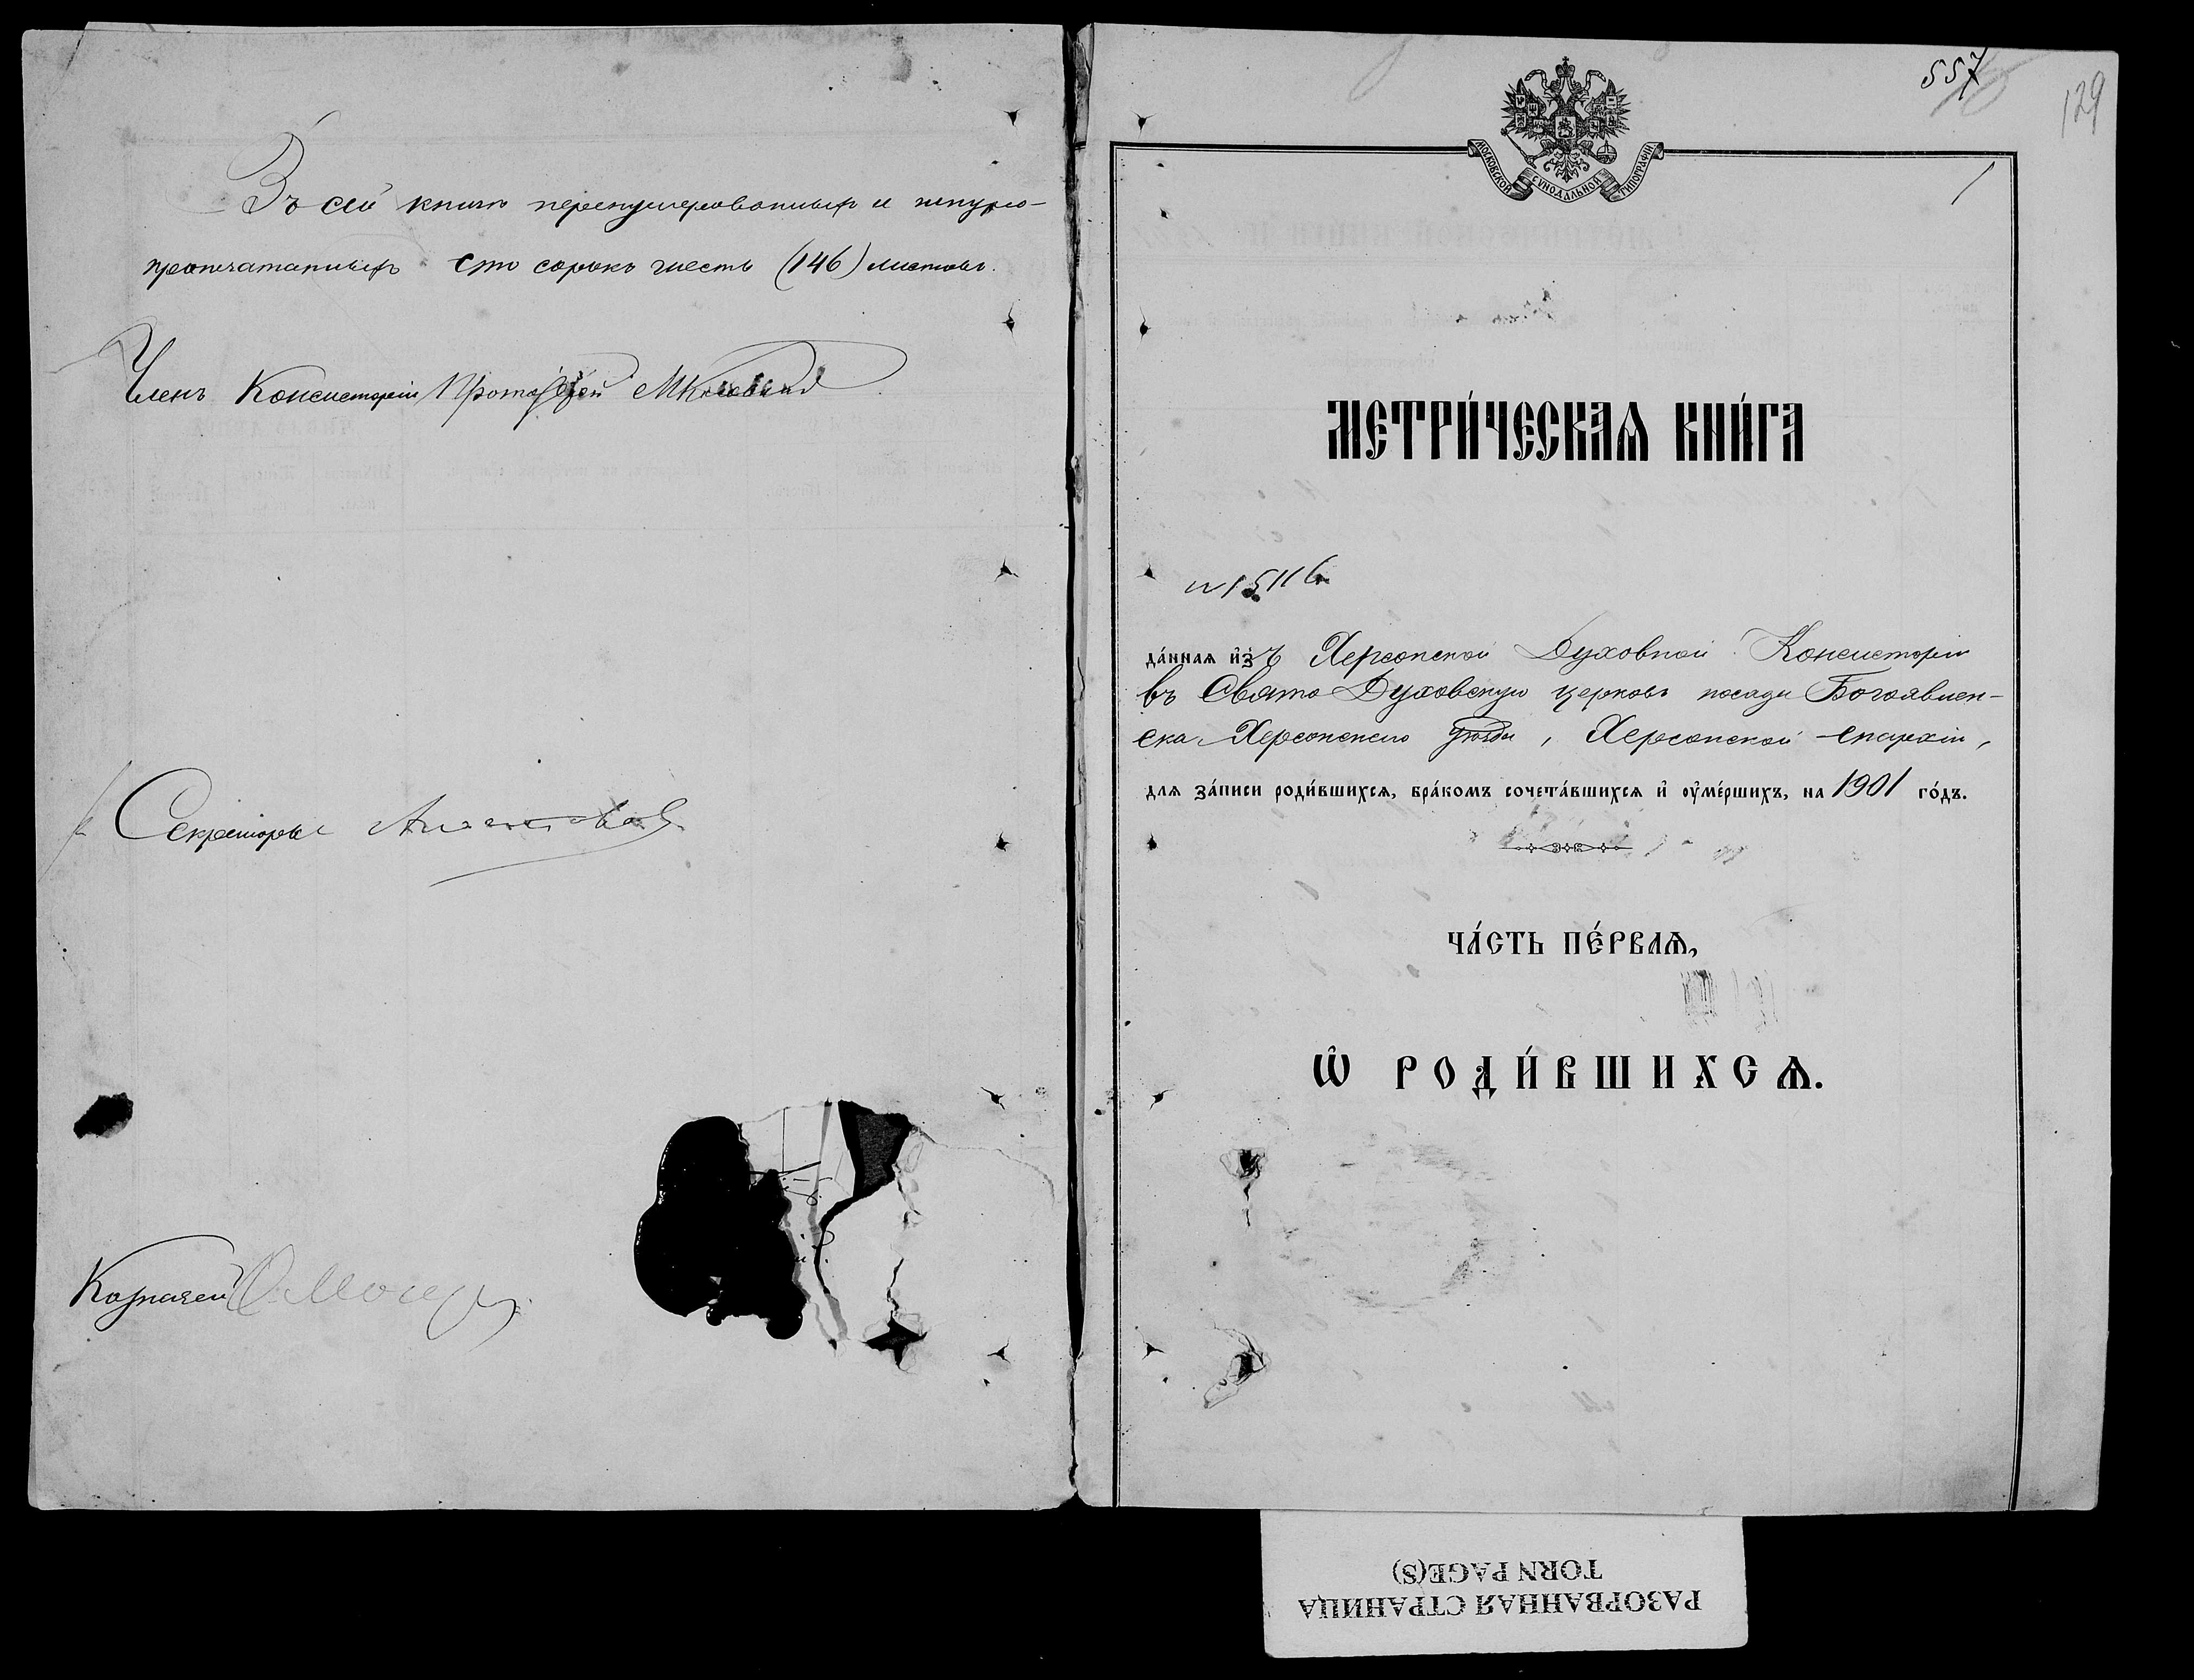 Въ сей книгѣ перенумерованныхъ и шнуро-
пропечатанныхъ сто сорокъ шесть (146) листовъ.
Членъ Консисторіи Протоіерей
Секретарь
Казначей
557
129
1
МОСКОВСКОЙ СѴНОДАЛЬНОЙ ТИПОГРАФІИ
МЕТРИ́ЧЕСКАѦ КНИ́ГА
№ 15116
да́ннаѧ и҆зъ Херсонской Духовной Консисторіи
въ Свято Духовскую церковь посада Богоявлен-
ска Херсонскаго уѣзда, Херсонской епархіи,
для за́писи роди́вшихсѧ, бра́комъ сочета́вшихсѧ и҆ оу҆ме́ршихъ, на 1901 го́дъ.
ЧА́СТЬ ПЕ́РВАѦ,
Ѡ҆ РОДИ́ВШИХСѦ.
РАЗОРВАННАЯ СТРАНИЦА
TORN PAGE(S)